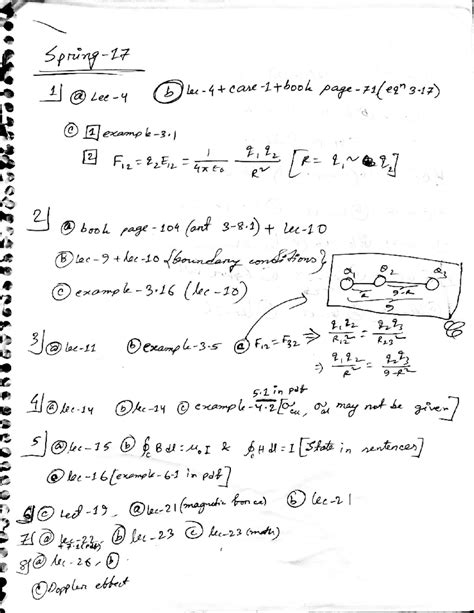 Spring-17
1] ⓐ Lec-4 ⓑ lec-4+case-1+book page-71(eqⁿ 3.17)
ⓒ [1] example-3.1
[2] F₁₂ = q₂E₁₂ = 1/4πε₀ q₁q₂/R² [R = q₁ ~ q₂]
2] ⓐ book page-104 (art 3-8.1) + Lec-10
ⓑ Lec-9 + lec-10 {boundary conditions}
ⓒ example-3.16 (lec-10)
Q₁ Q₂ Q₃
R 9-R
9
3] ⓐ lec-11 ⓑ example-3.5 ⓓ F₁₂ = F₃₂ ⇒ q₁q₂/R₁₂² = q₂q₃/R₂₃²
⇒ q₁q₂/R² = q₂q₃/9-R²
5.1 in pdf
4] ⓐ lec-14 ⓑ lec-14 ⓒ example-4.2 [σcu, σal may not be given]
5] ⓐ lec-15 ⓑ ∮c B dl = μ₀I & ∮c H dl = I [State in sentences]
ⓐ lec-16 [example-6.1 in pdf]
6] ⓒ Lec-19, ⓐ lec-21 (magnetic forces) ⓑ lec-21
7] ⓐ lec-22 ⓑ lec-23 ⓒ lec-23 (math)
+7.1 (pdf)
8] ⓐ lec-26, ⓑ
ⓒ Doppler effect